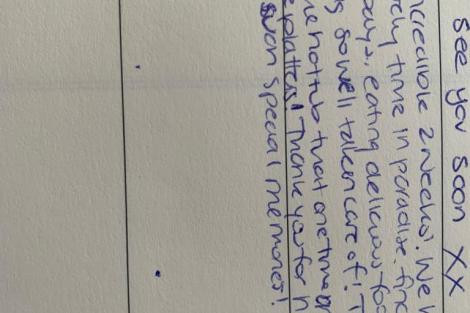 see you soon XX
ncredible 2 weeks! We h
ely time in paradise. find
bays, eating delicious foo
g so well taken care of! T
he hot tub that one time or
e platters! Thank you for n
such special memories!